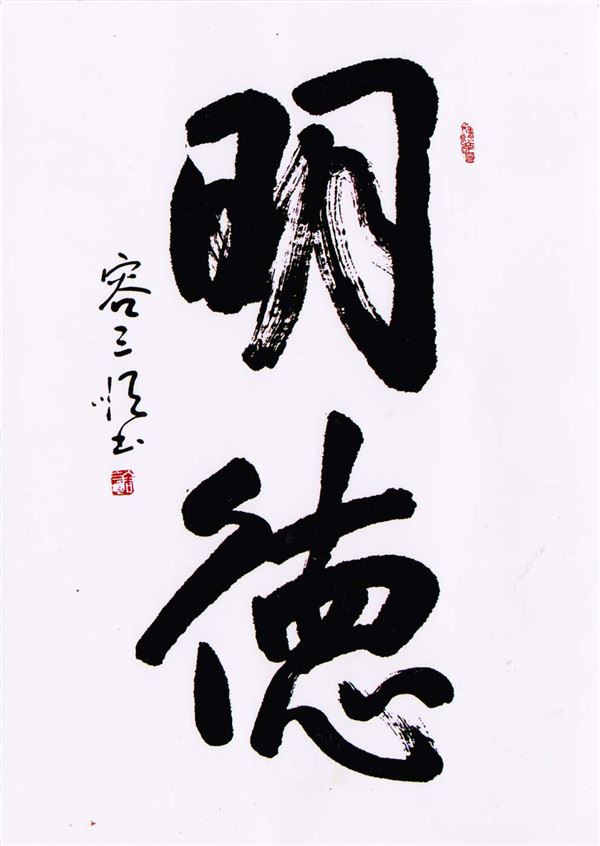 明德
容三顺书